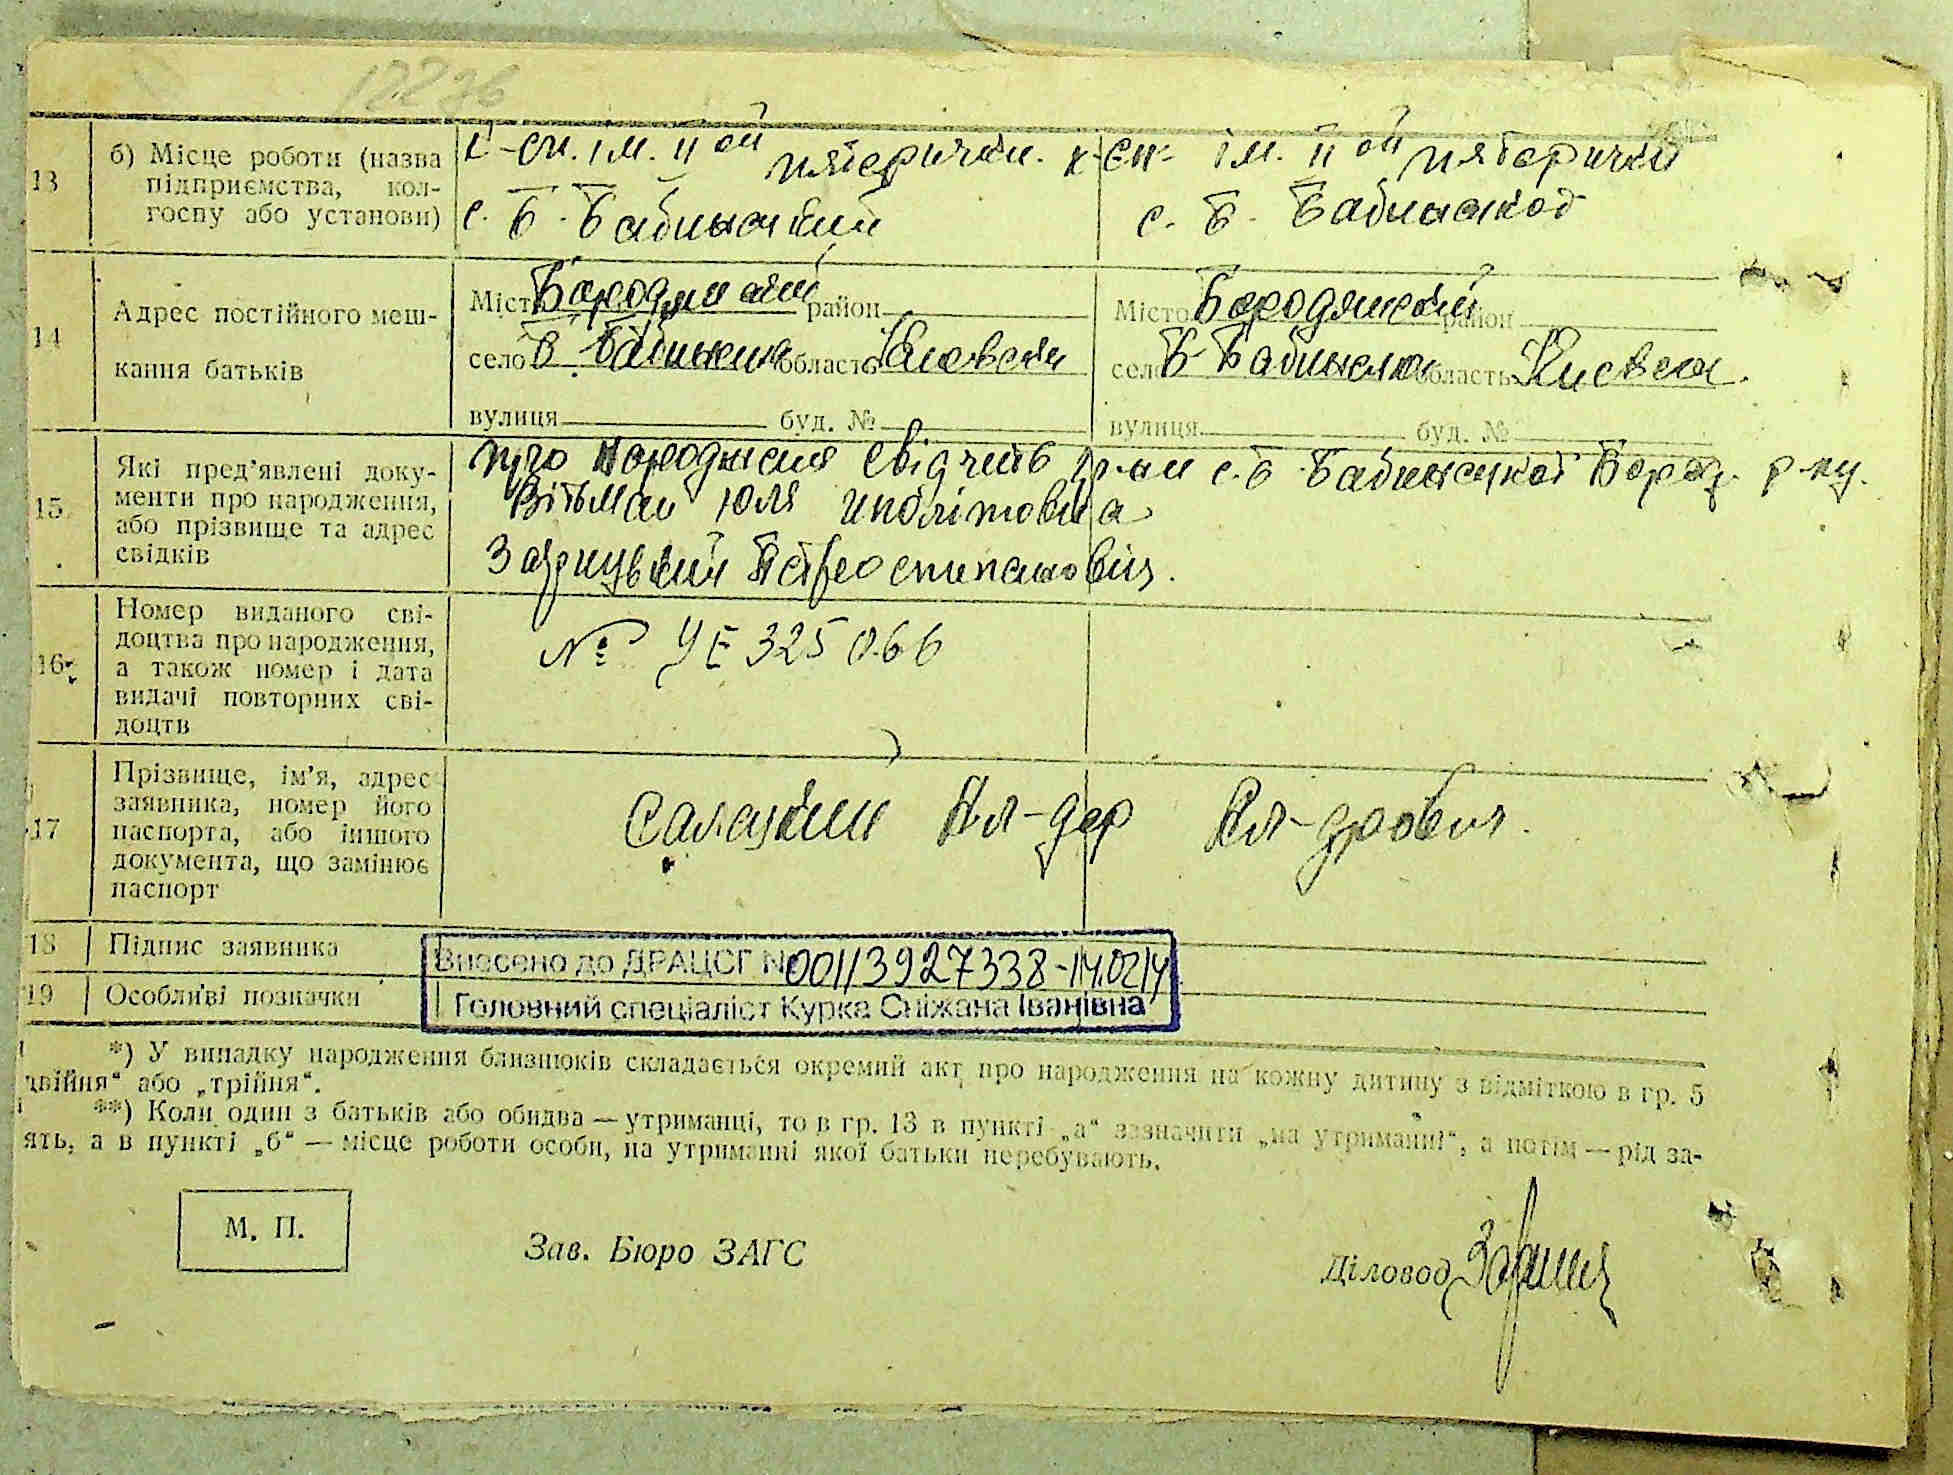 12236
13
б) Місце роботи (назва
підприємства, кол-
госпу або установи)
К-сп. ім. II ой пятерички.
с. Б. Бабинький
к-сп. ім. II ой пятерички
с. Б. Бабинској
14
Адрес постійного меш-
кання батьків
Місто Бородянський район
село Б. Бабинька область Киевская
вулиця буд. №
Місто Бородянский район
село Б. Бабинька область Киевская.
вулиця буд. №
15
Які пред'явлені доку-
менти про народження,
або прізвище та адрес
свідків
про народження свідчить гр-ни с. Б. Бабинської Бород. р-ну.
Вітьман Юля
16
Номер виданого сві-
доцтва про народження,
а також номер і дата
видачі повторних сві-
доцтв
№ УЕ 325066
17
Прізвище, ім'я, адрес
заявника, номер його
паспорта, або іншого
документа, що замінює
паспорт
Ал-дер Ал-дрович.
18
Підпис заявника
19
Особливі позначки
Внесено до ДРАЦСГ №00113927338-14.02.14
Головний спеціаліст Курка Сніжана Іванівна
*) У випадку народження близнюків складається окремий акт про народження на кожну дитину з відміткою в гр. 5
двійня“ або „трійня“.
**) Коли один з батьків або обидва — утриманці, то в гр. 13 в пункті „а“ зазначити „на утриманні“, а потім — рід за-
ять, а в пункті „б“ — місце роботи особи, на утриманні якої батьки перебувають.
М. П.
Зав. Бюро ЗАГС
Діловод